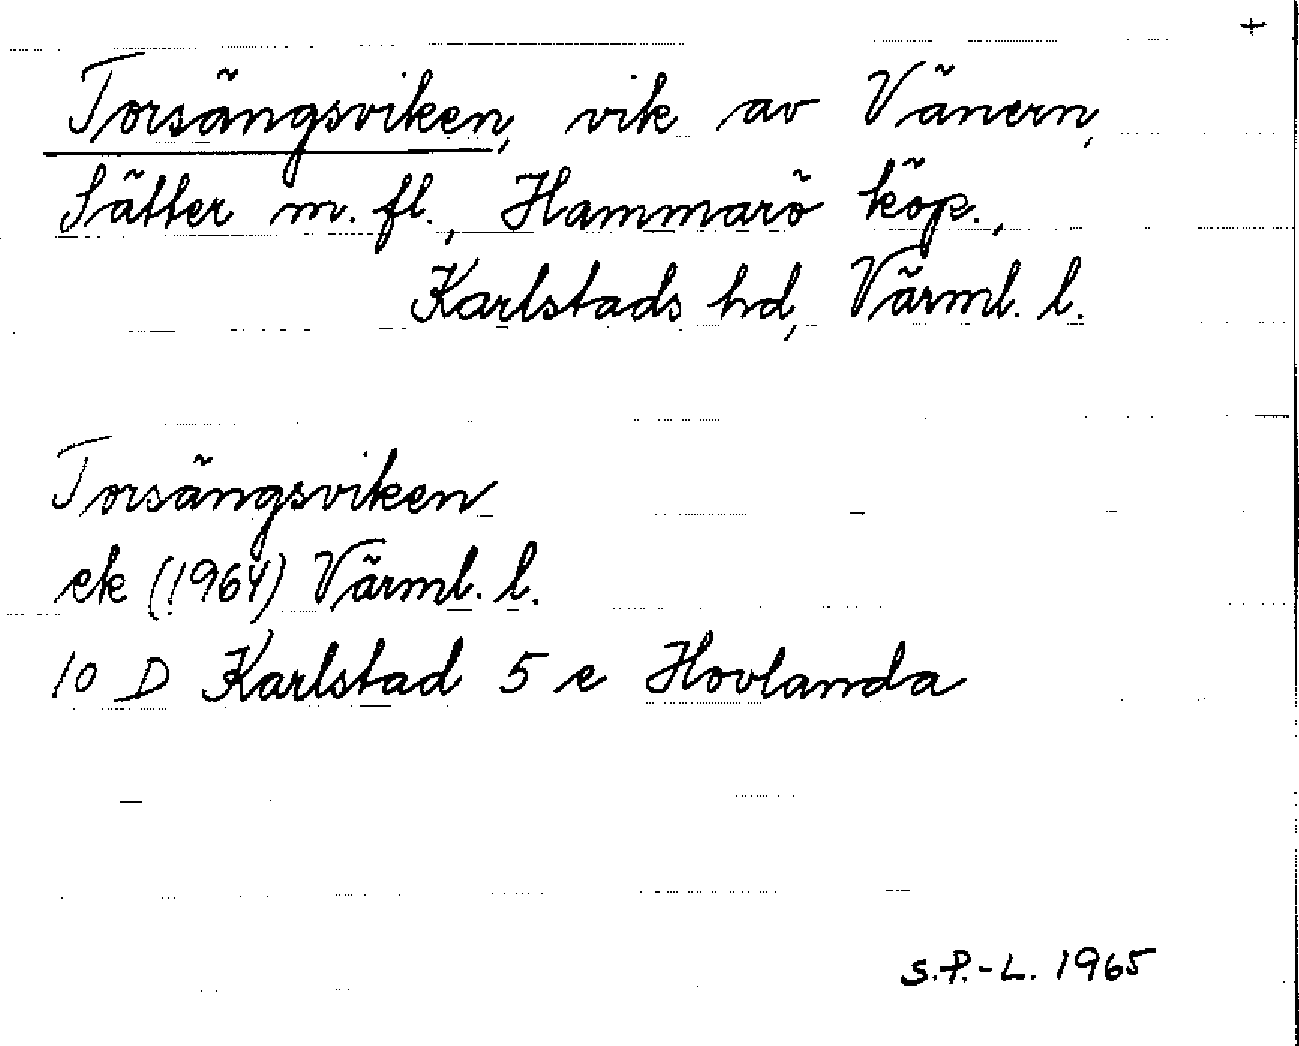 +
Torsängsviken, vik av Vänern,
Sätter m. fl., Hammarö köp.,
Karlstads hd, Värml. l.
Torsängsviken
ek (1964) Värml. l.
10 D Karlstad 5 e Hovlanda
S.P.-L. 1965